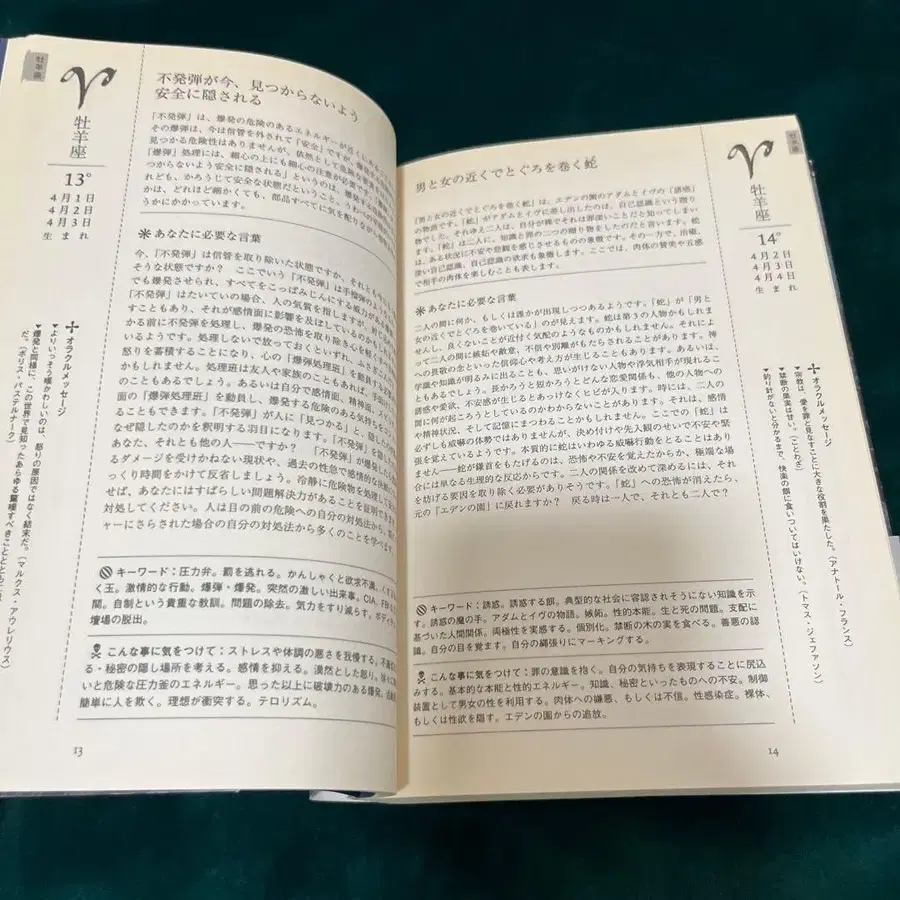 牡羊座
牡羊座
13°
4月1日
4月2日
4月3日
生まれ
不発弾が今、見つからないよう
安全に隠される
「不発弾」は、爆発の危険のあるエネルギーが
その爆弾は、今は信管を外されて「安全」ですが、爆
見つかる危険性はありませんが、依然として危険な
「爆弾」処理には、細心の上にも細心の注意が必要です。
つからないよう安全に隠される」というのは、爆発する
れども、かろうじて安全な状態だということ。うわべの平静
かは、どれほど細かくても、部品すべてに気を配りなが
うかにかかっています。
あなたに必要な言葉
今、「不発弾」は信管を取り除いた状態ですか、それとも今に
そうな状態ですか? ここでいう「不発弾」は手榴弾のよう
でも爆発させられ、すべてをこっぱみじんにする威力があり
「不発弾」はたいていの場合、人の気質を指しますが、
すこともあり、それが感情面に影響を及ぼしているのかもし
かる前に不発弾を処理し、爆発の恐怖を取り除き心を軽く
いるようです。処理しないで放っておくといずれ、
怒りを蓄積することになり、心の「爆弾処理班」を動員する
かもしれません。処理班は友人や家族のこともあれば、
のこともあるでしょう。あるいは自分で感情面、精神面、
面の「爆弾処理班」を動員し、爆発する危険のある気持ちを
ることもできます。「不発弾」が人に「見つかる」と、隠した
なぜ隠したのかを釈明する羽目になります。「不発弾」を隠した
あなた、それとも他の人――ですか? 「不発弾」が爆発したら
るダメージを受けかねない現状や、過去の性急で感情的な決断
っくり時間をかけて反省しましょう。冷静に危険物を処理して
せば、あなたにはすばらしい問題解決力があることを証明でき
対処してください。人は目の前の危険への自分の対処法から、
ャーにさらされた場合の自分の対処法から多くのことを学べます。
キーワード:圧力弁。罰を逃れる。かんしゃくと欲求不満。くす
く玉。激情的な行動。爆弾・爆発。突然の激しい出来事。CIA、FBI
関。自制という貴重な教訓。問題の除去。気力をすり減らす。ボディ
壇場の脱出。
こんな事に気をつけて:ストレスや体調の悪さを我慢する。不
る・秘密の隠し場所を考える。感情を抑える。漠然とした怒り。
いと危険な圧力釜のエネルギー。思った以上に破壊力のある爆発。
簡単に人を欺く。理想が衝突する。テロリズム。
オラクルメッセージ
▼よりいっそう嘆かわしいのは、怒りの原因ではなく結末だ。(マルクス・アウレリウス)
▼爆発と同様に、この世界で見知ったあらゆる驚嘆すべきこととともに
だ。(ボリス・パステルナーク)
13
牡羊座
牡羊座
14°
4月2日
4月3日
4月4日
生まれ
男と女の近くでとぐろを巻く蛇
「男と女の近くでとぐろを巻く蛇」は、エデンの園のアダムとイヴの「誘惑」
の物語です。「蛇」がアダムとイヴに差し出したのは、自己認識という贈り
物でした。それゆえ二人は、自分が裸でそれは罪深いことだと知ってしまい
ます。「蛇」は二人に、知識と罪の二つの贈り物をしたのだと言います。
は、ある状況に不安や悲観を感じさせるものの象徴です。その一方で、治癒、
深い自己認識、自己認識の欲求も象徴します。ここでは、肉体の賛美や五感
で相手の肉体を楽しむことも表します。
あなたに必要な言葉
二人の間に何か、もしくは誰かが出現しつつあるようです。「蛇」が「男と
女の近くでとぐろを巻いている」のが見えます。蛇は第3の人物かもしれま
せんし、良くないことが近付く気配のようなものかもしれません。それによ
って二人の間に嫉妬や敵意、不信や別離がもたらされることがあります。神
への畏敬の念といった信仰心や考え方が生じることもあります。あるいは、
学識や知識が明るみに出ることも、思いがけない人物や浮気相手が現れるこ
ともあるでしょう。長かろうと短かろうとどんな恋愛関係も、他の人物への
誘惑や愛欲、不安感が生じるとあっけなくヒビが入ります。時には、二人の
間に何が起ころうとしているのかわからないことがあります。それは、感情
や精神状況、そして記憶にまつわることかもしれません。ここでの「蛇」は
必ずしも威嚇の体勢ではありませんが、決め付けや先入観のせいで不安や緊
張を覚えているようです。本質的に蛇はいわゆる威嚇行動をとることはあり
ません――蛇が鎌首をもたげるのは、恐怖や不安を覚えたからか、極端な場
合には単なる生理的な反応からです。二人の関係を改めて深めるには、それ
を妨げる要因を取り除く必要がありそうです。「蛇」への恐怖が消えたら、
元の「エデンの園」に戻れますか? 戻る時は一人で、それとも二人で?
キーワード:誘惑。誘惑する餌。典型的な社会に容認されそうにない知識を示
す。誘惑の魔の手。アダムとイヴの物語。嫉妬。性的本能。生と死の問題。支配に
基づいた人間関係。両極性を実感する。個別化。禁断の木の実を食べる。善悪の認
識。自分の目を覚ます。自分の縄張りにマーキングする。
こんな事に気をつけて:罪の意識を抱く。自分の気持ちを表現することに尻込
みする。基本的な本能と性的エネルギー。知識、秘密といったものへの不安。制御
装置として男女の性を利用する。肉体への嫌悪、もしくは不信。性感染症。裸体、
もしくは性欲を隠す。エデンの園からの追放。
オラクルメッセージ
▼宗教は、愛を罪と見なすことに大きな役割を果たした。(アナトール・フランス)
▼禁断の果実は甘い。(ことわざ)
▼釣り針がないと分かるまで、快楽の餌に食いついてはいけない。(トマス・ジェファソン)
14